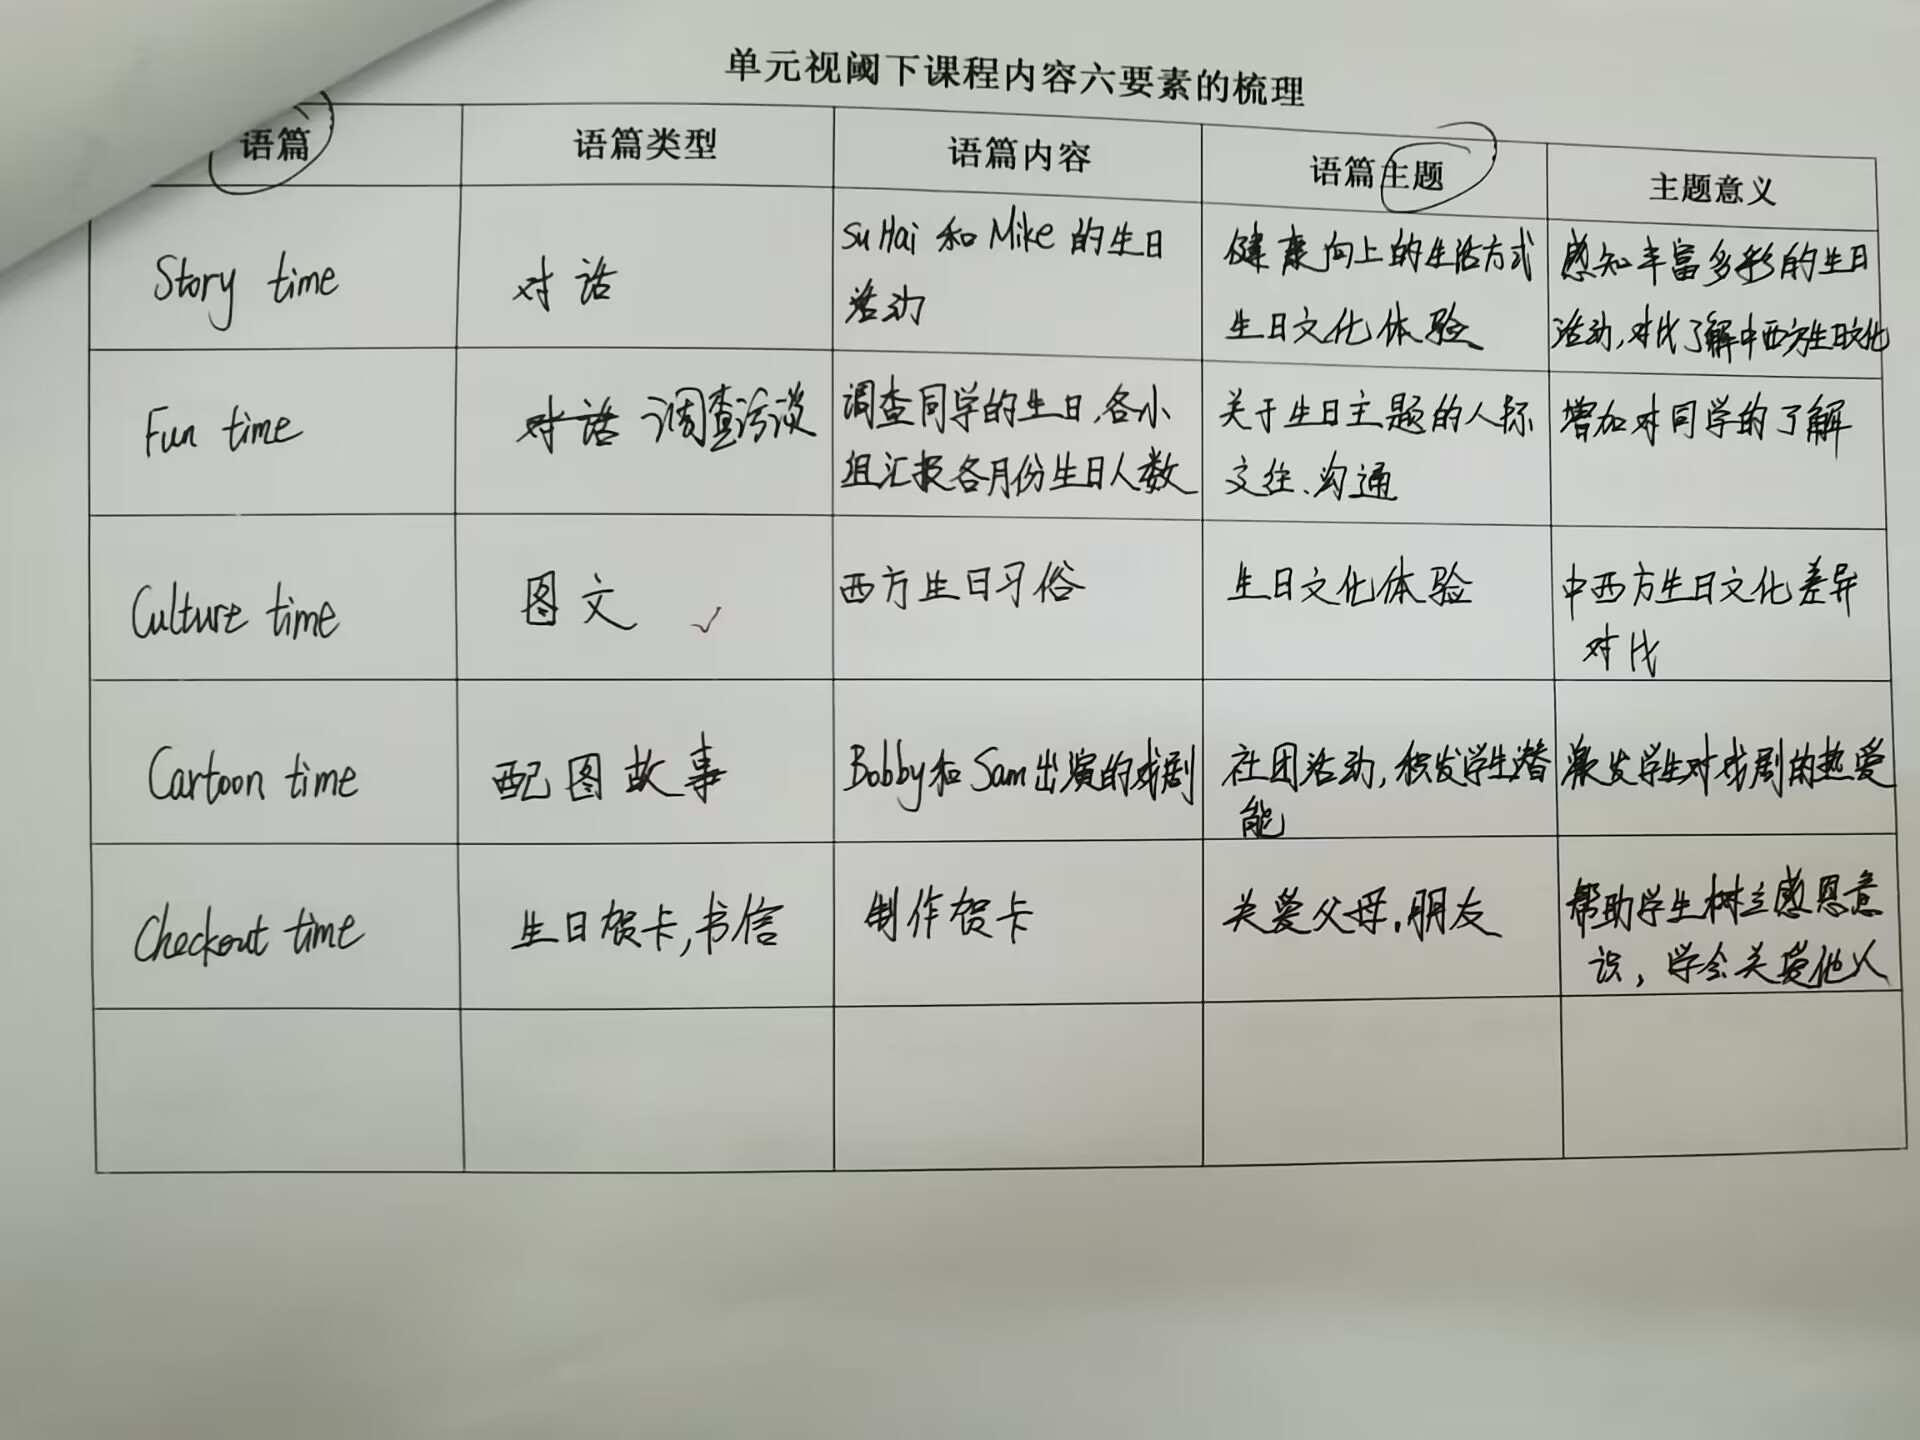 单元视阈下课程内容六要素的梳理
语篇
语篇类型
语篇内容
语篇主题
主题意义
Story time
对话
Su Hai 和 Mike 的生日
活动
健康向上的生活方式
生日文化体验
感知丰富多彩的生日
活动,对比了解中西方生日文化
Fun time
对话 调查访谈
调查同学的生日,各小
组汇报各月份生日人数
关于生日主题的人际
交往、沟通
增加对同学的了解
Culture time
图文 ✓
西方生日习俗
生日文化体验
中西方生日文化差异
对比
Cartoon time
配图故事
Bobby和Sam出演的戏剧
社团活动,积发学生潜
能
激发学生对戏剧的热爱
Checkout time
生日贺卡,书信
制作贺卡
关爱父母,朋友
帮助学生树立感恩意
识,学会关爱他人